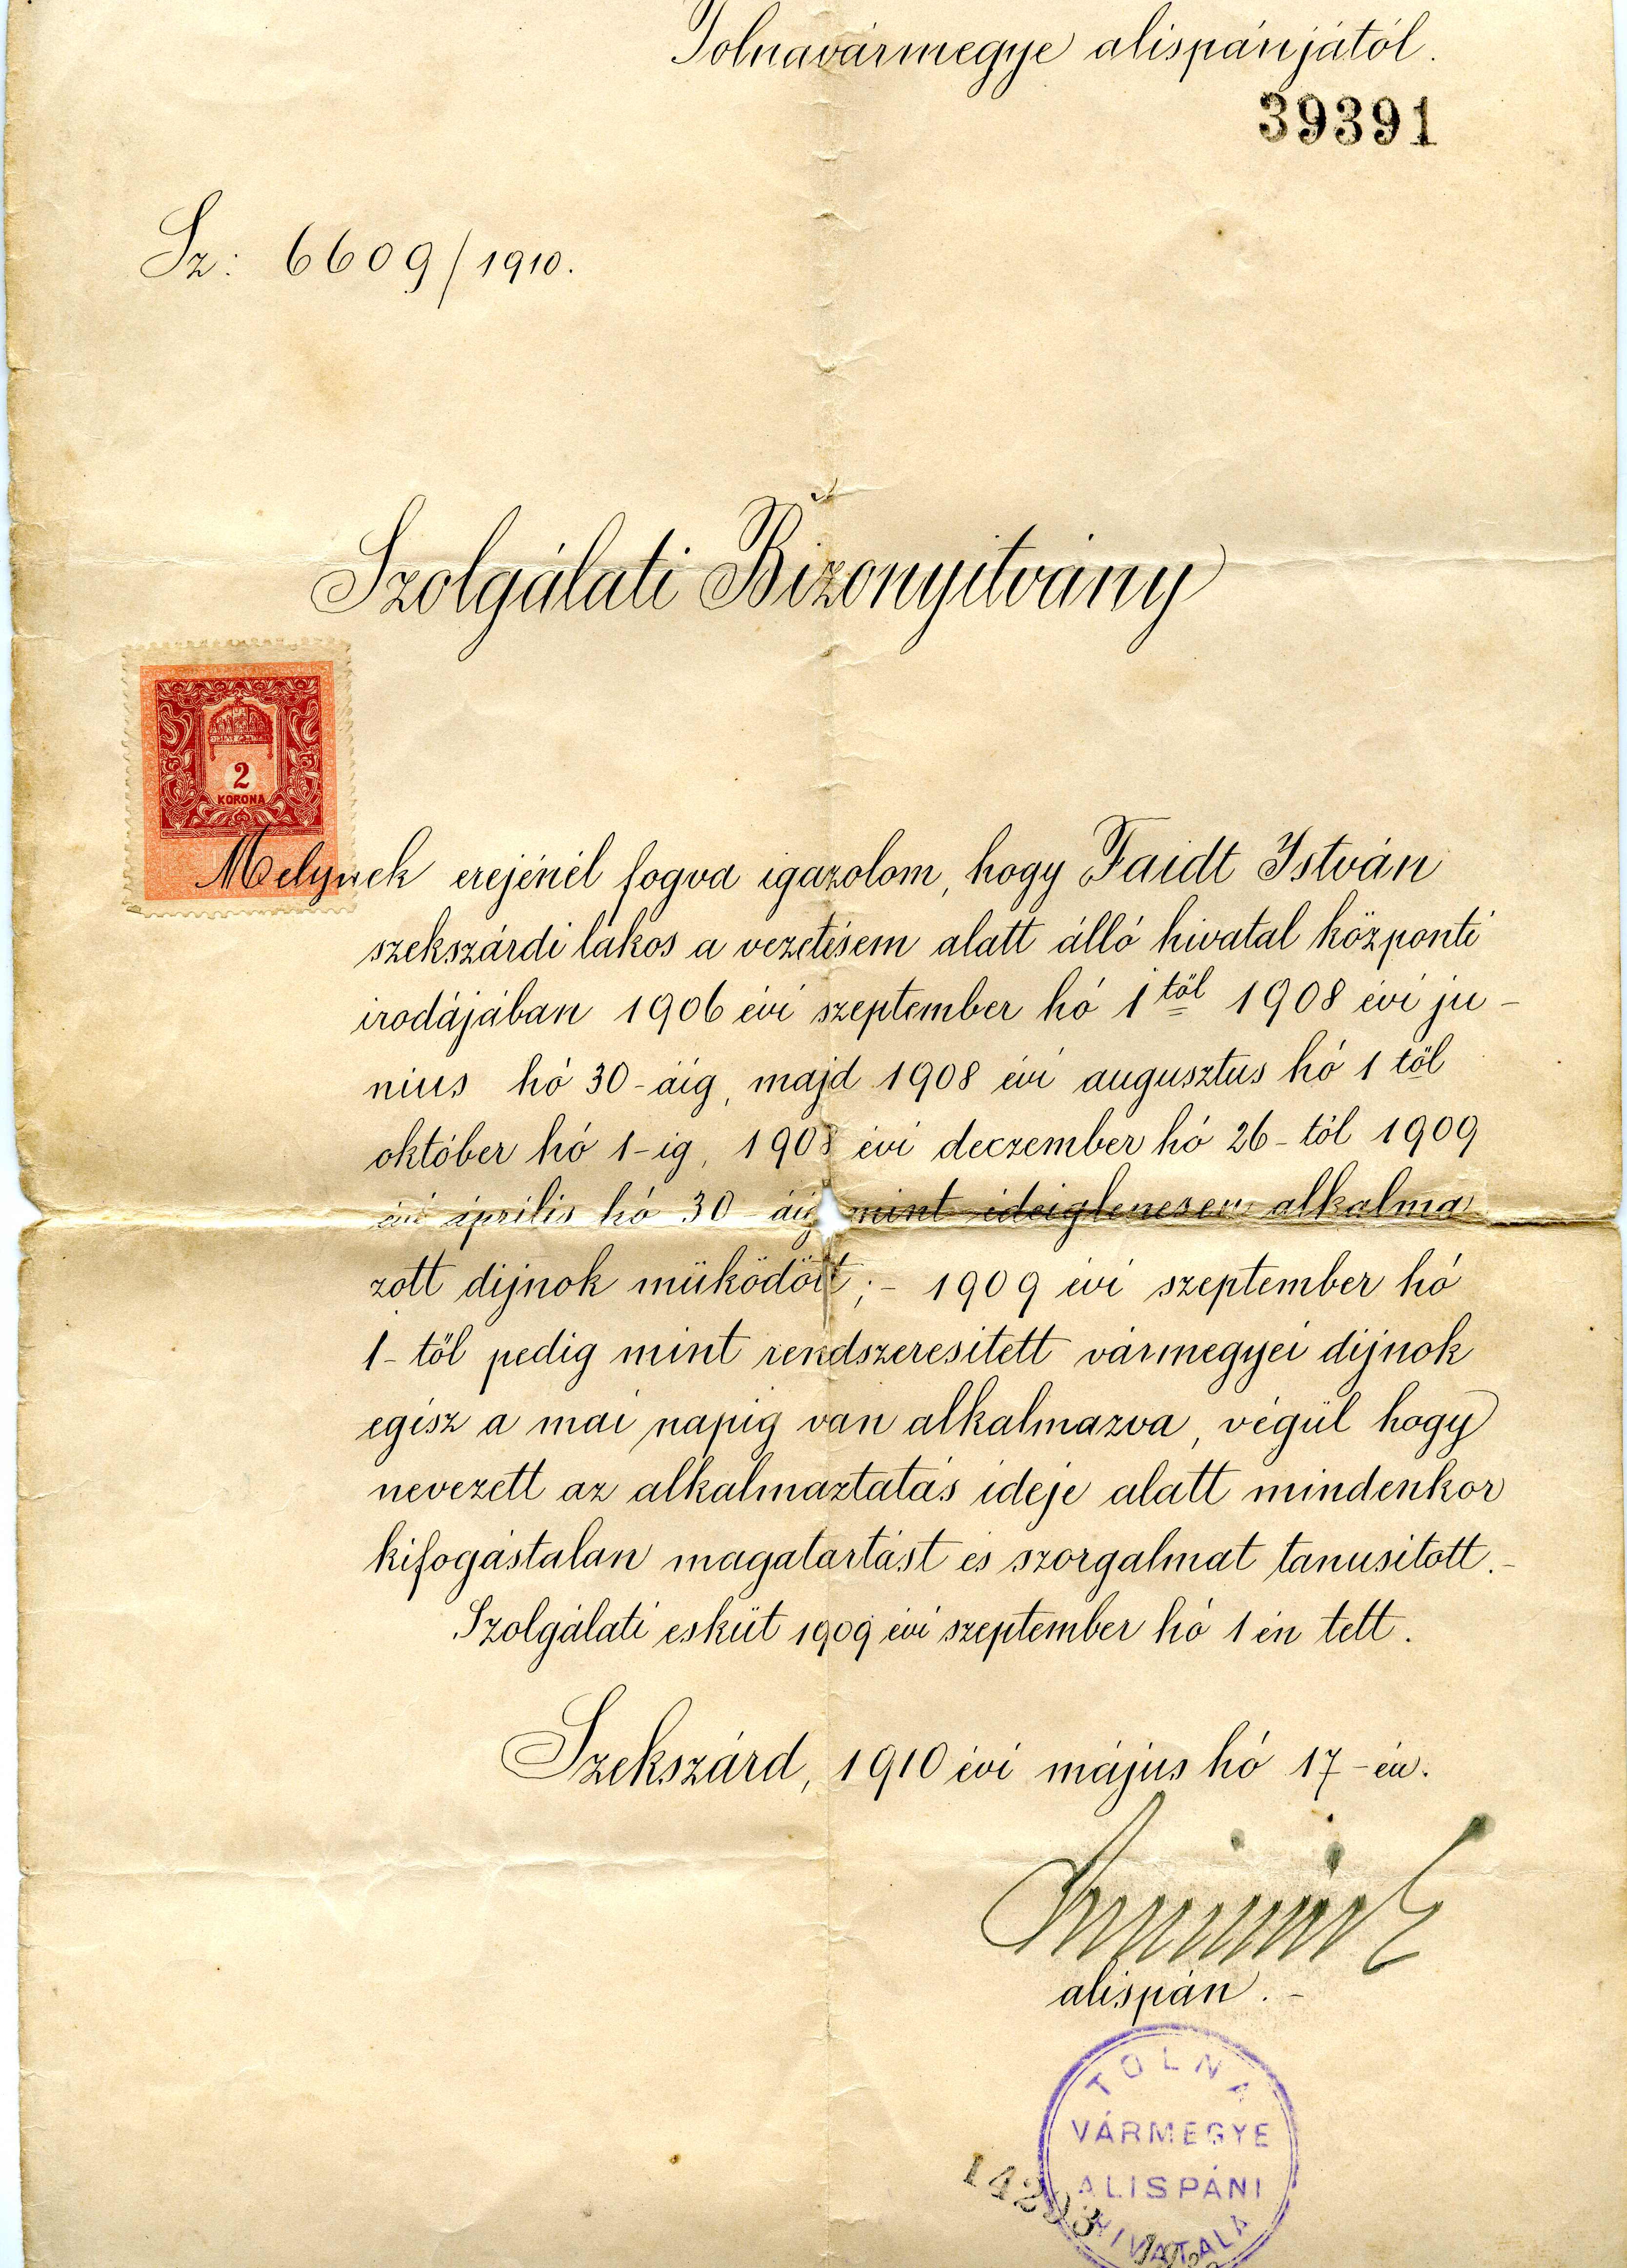 Tolnavármegye alispánjától.
39391
Sz: 6609/1910.
Szolgálati Bizonyitvány
2
KORONA
Melynek erejénél fogva igazolom, hogy Faidt István
szekszárdi lakos a vezetésem alatt álló hivatal központi
irodájában 1906 évi szeptember hó 1től 1908 évi ju-
nius hó 30-áig, majd 1908 évi augusztus hó 1 től
október hó 1-ig, 1908 évi deczember hó 26-tól 1909
évi április hó 30 áig mint ideiglenesen alkalma
zott dijnok müködött;- 1909 évi szeptember hó
1-től pedig mint rendszeresitett vármegyei dijnok
egész a mai napig van alkalmazva, végül hogy
nevezett az alkalmaztatás ideje alatt mindenkor
kifogástalan magatartást és szorgalmat tanusitott.-
Szolgálati esküt 1909 évi szeptember hó 1 én tett.
Szekszárd, 1910 évi május hó 17-én.
alispán.-
TOLNA
VÁRMEGYE
ALISPÁNI
HIVATALA